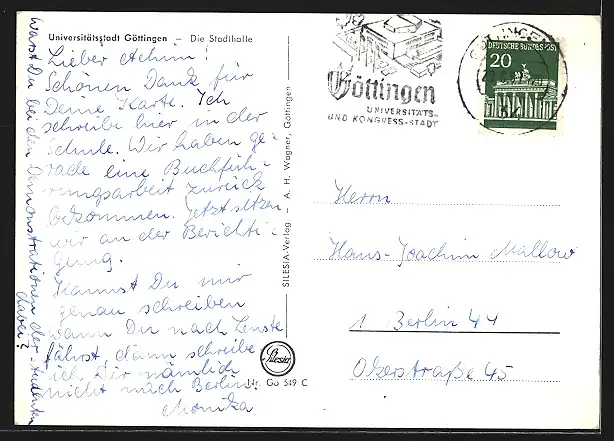 Universitätsstadt Göttingen – Die Stadthalle
Lieber Achim!
Schönen Dank für
Deine Karte. Ich
schreibe hier in der
Schule. Wir haben ge-
rade eine Buchfüh-
rungsarbeit zurück
bekommen. Jetzt sitzen
wir an der Berichti-
gung.
Kannst Du mir
genau schreiben
wann Du nach Lenste
fährst, dann schreibe
ich Dir nämlich
nicht nach Berlin.
Monika
Warst Du bei den Demonstrationen der Studenten
dabei?
SILESIA-Verlag – A. H. Wagner, Göttingen
Silesia
Nr. Gö 549 C
Göttingen
UNIVERSITÄTS-
UND KONGRESS-STADT
GÖTTINGEN
DEUTSCHE BUNDESPOST
20
Herrn
Hans-Joachim Mallow
1 Berlin 44
Okerstraße 45